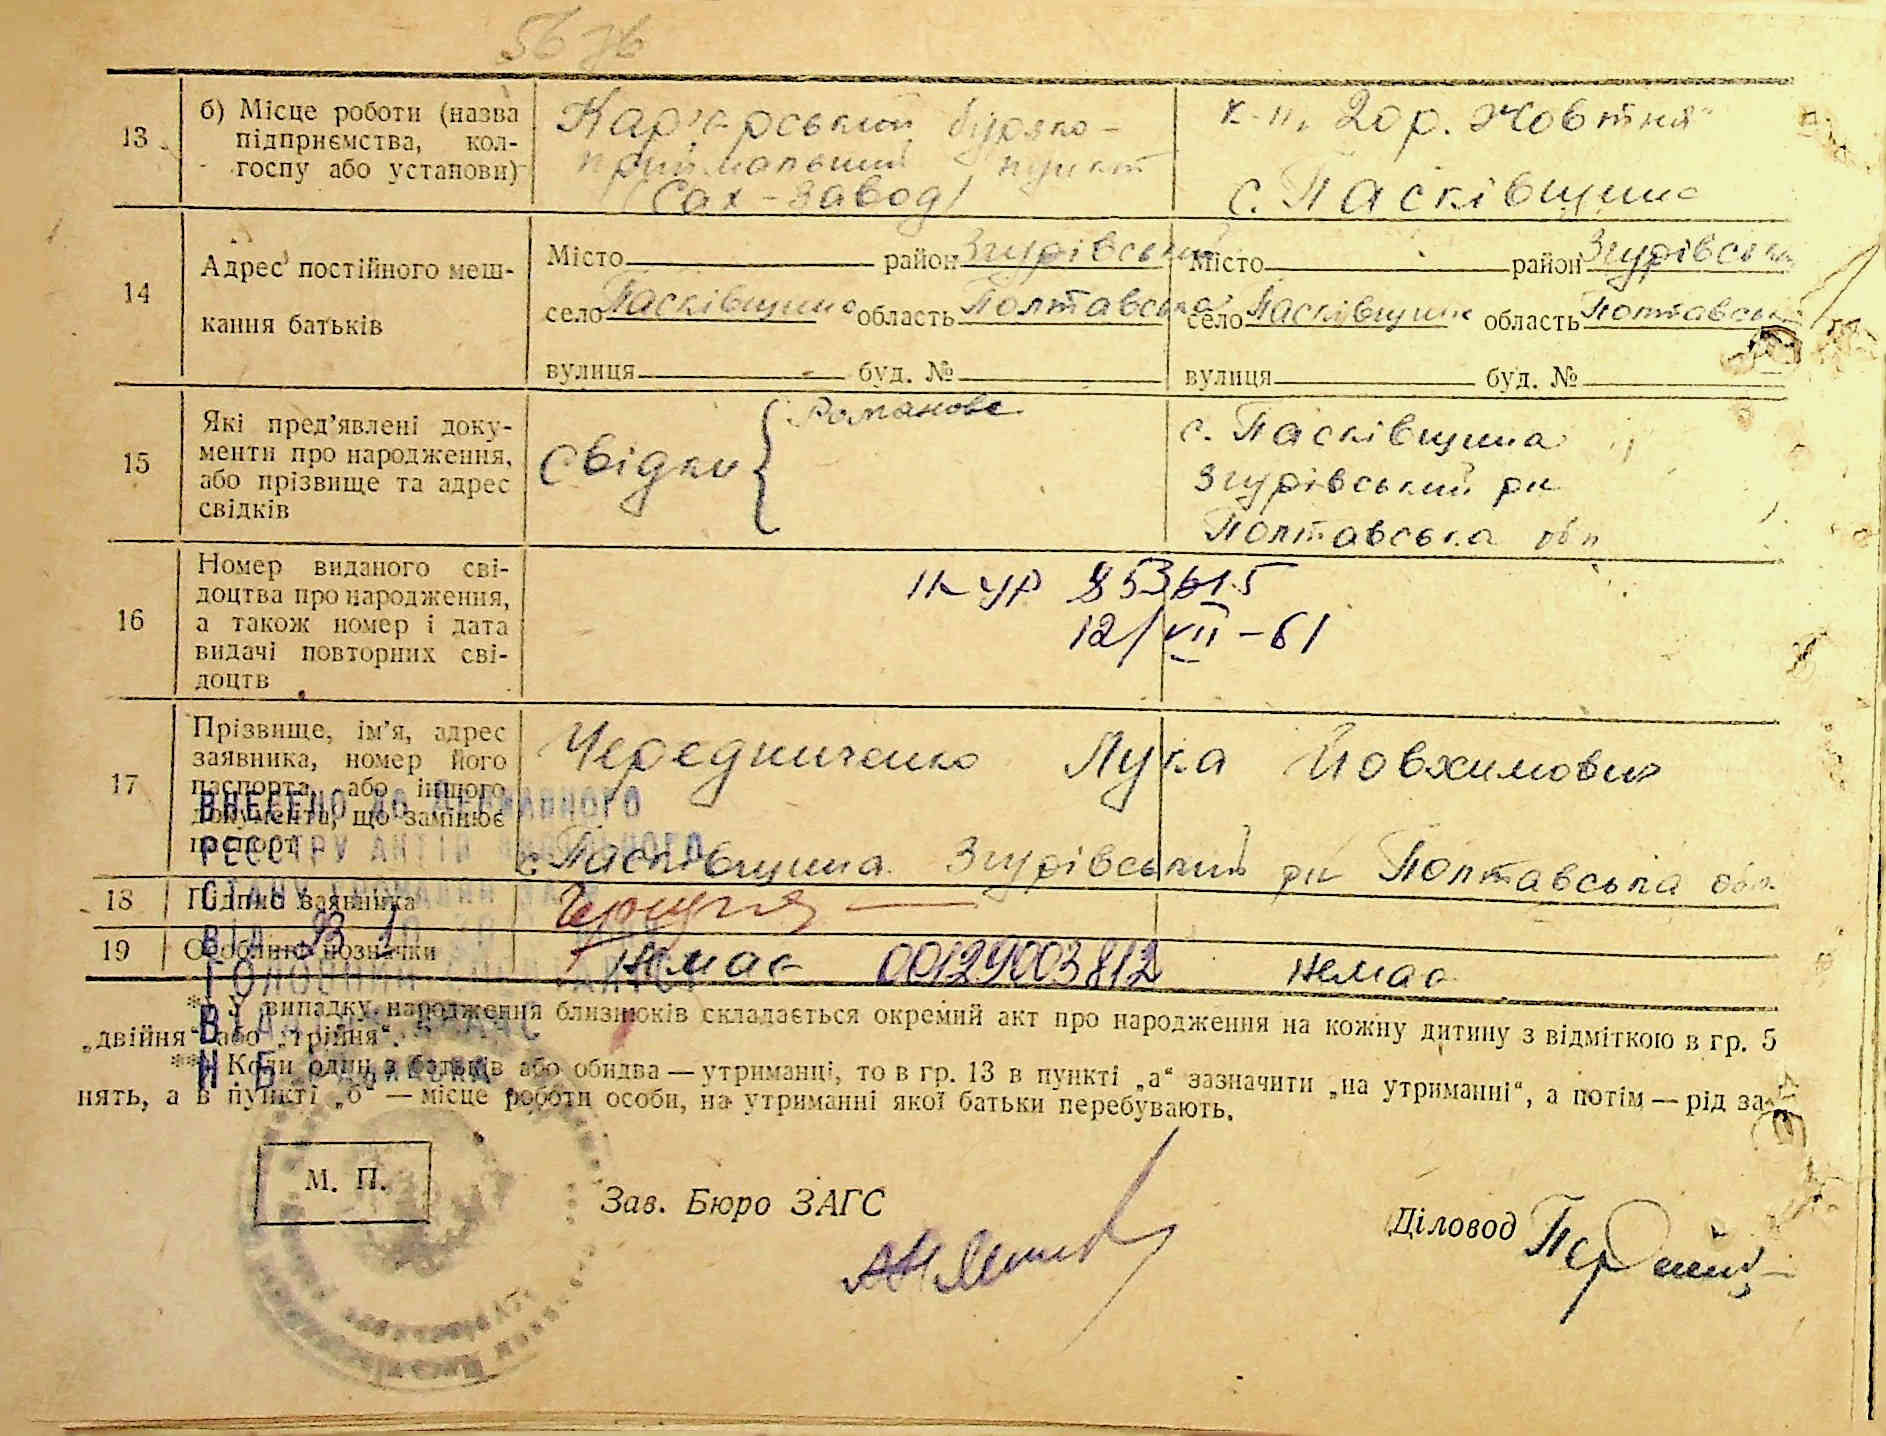 13
б) Місце роботи (назва
підприємства, кол-
госпу або установи)
Кар'єрський буряко-
приймальний пункт
(Сах-завод)
к-п. 20 р. Жовтня
с. Пасківщина
14
Адрес постійного меш-
кання батьків
Місто район Згурівський
село Пасківщина область Полтавська
вулиця буд. №
Місто район Згурівськ
село Пасківщина область Полтавськ
вулиця буд. №
15
Які пред'явлені доку-
менти про народження,
або прізвище та адрес
свідків
Свідки
Романова
с. Пасківщина
Згурівський рн
Полтавська обл
16
Номер виданого сві-
доцтва про народження,
а також номер і дата
видачі повторних сві-
доцтв
УР 853615
12/VII-61
17
Прізвище, ім'я, адрес
заявника, номер його
паспорта або іншого
документа, що замінює
паспорт
Чередниченко Лука Йовхимович
с. Пасківщина Згурівський рн Полтавська обл.
ВНЕСЕНО ДО ДЕРЖАВНОГО
РЕЄСТРУ АКТІВ ЦИВІЛЬНОГО
СТАНУ ГРОМАДЯН ЗА №
ВІД
18 Підпис заявника
19 Особливі позначки
немає 00129003812 немає
* У випадку народження близнюків складається окремий акт про народження на кожну дитину з відміткою в гр. 5
„двійня" або „трійня".
** Коли один з батьків або обидва — утриманці, то в гр. 13 в пункті „а" зазначити „на утриманні", а потім — рід за-
нять, а в пункті „б" — місце роботи особи, на утриманні якої батьки перебувають.
М. П.
Зав. Бюро ЗАГС
Діловод